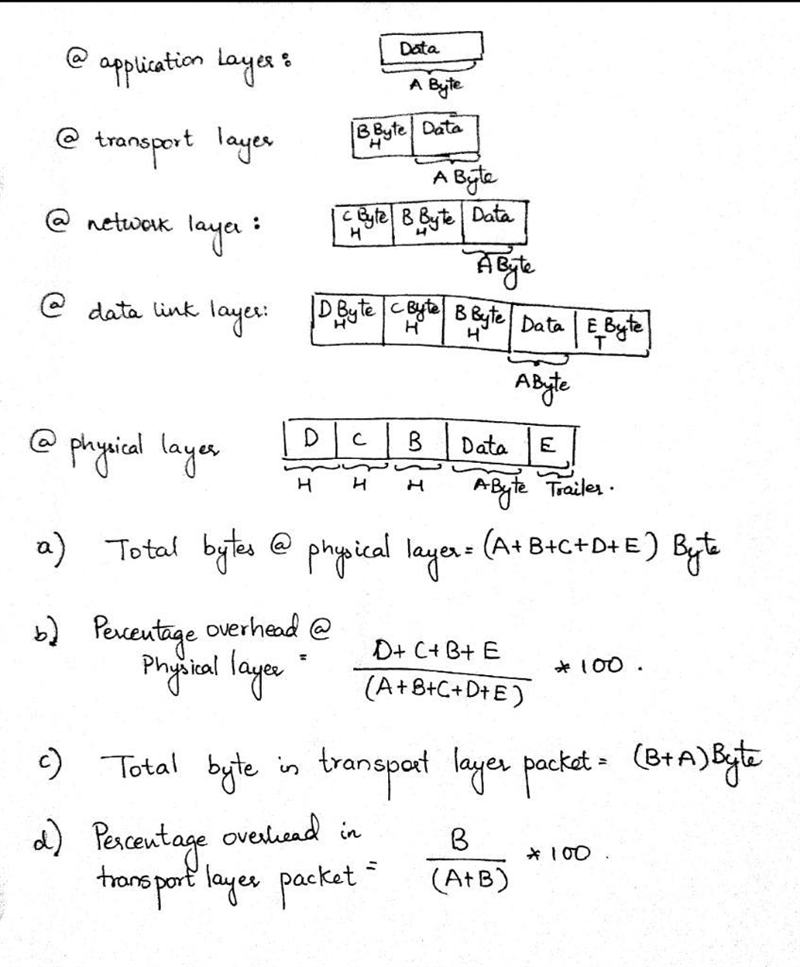 @ application Layer:
Data
A Byte
@ transport layer
B Byte H Data
A Byte
@ network layer:
C Byte H B Byte H Data
A Byte
@ data link layer:
D Byte H C Byte H B Byte H Data E Byte T
A Byte
@ physical layer
D C B Data E
H H H A Byte Trailer.
a) Total bytes @ physical layer = (A+B+C+D+E) Byte
b) Percentage overhead @
Physical layer = D+C+B+E / (A+B+C+D+E) * 100.
c) Total byte in transport layer packet = (B+A) Byte
d) Percentage overhead in
transport layer packet = B / (A+B) * 100.